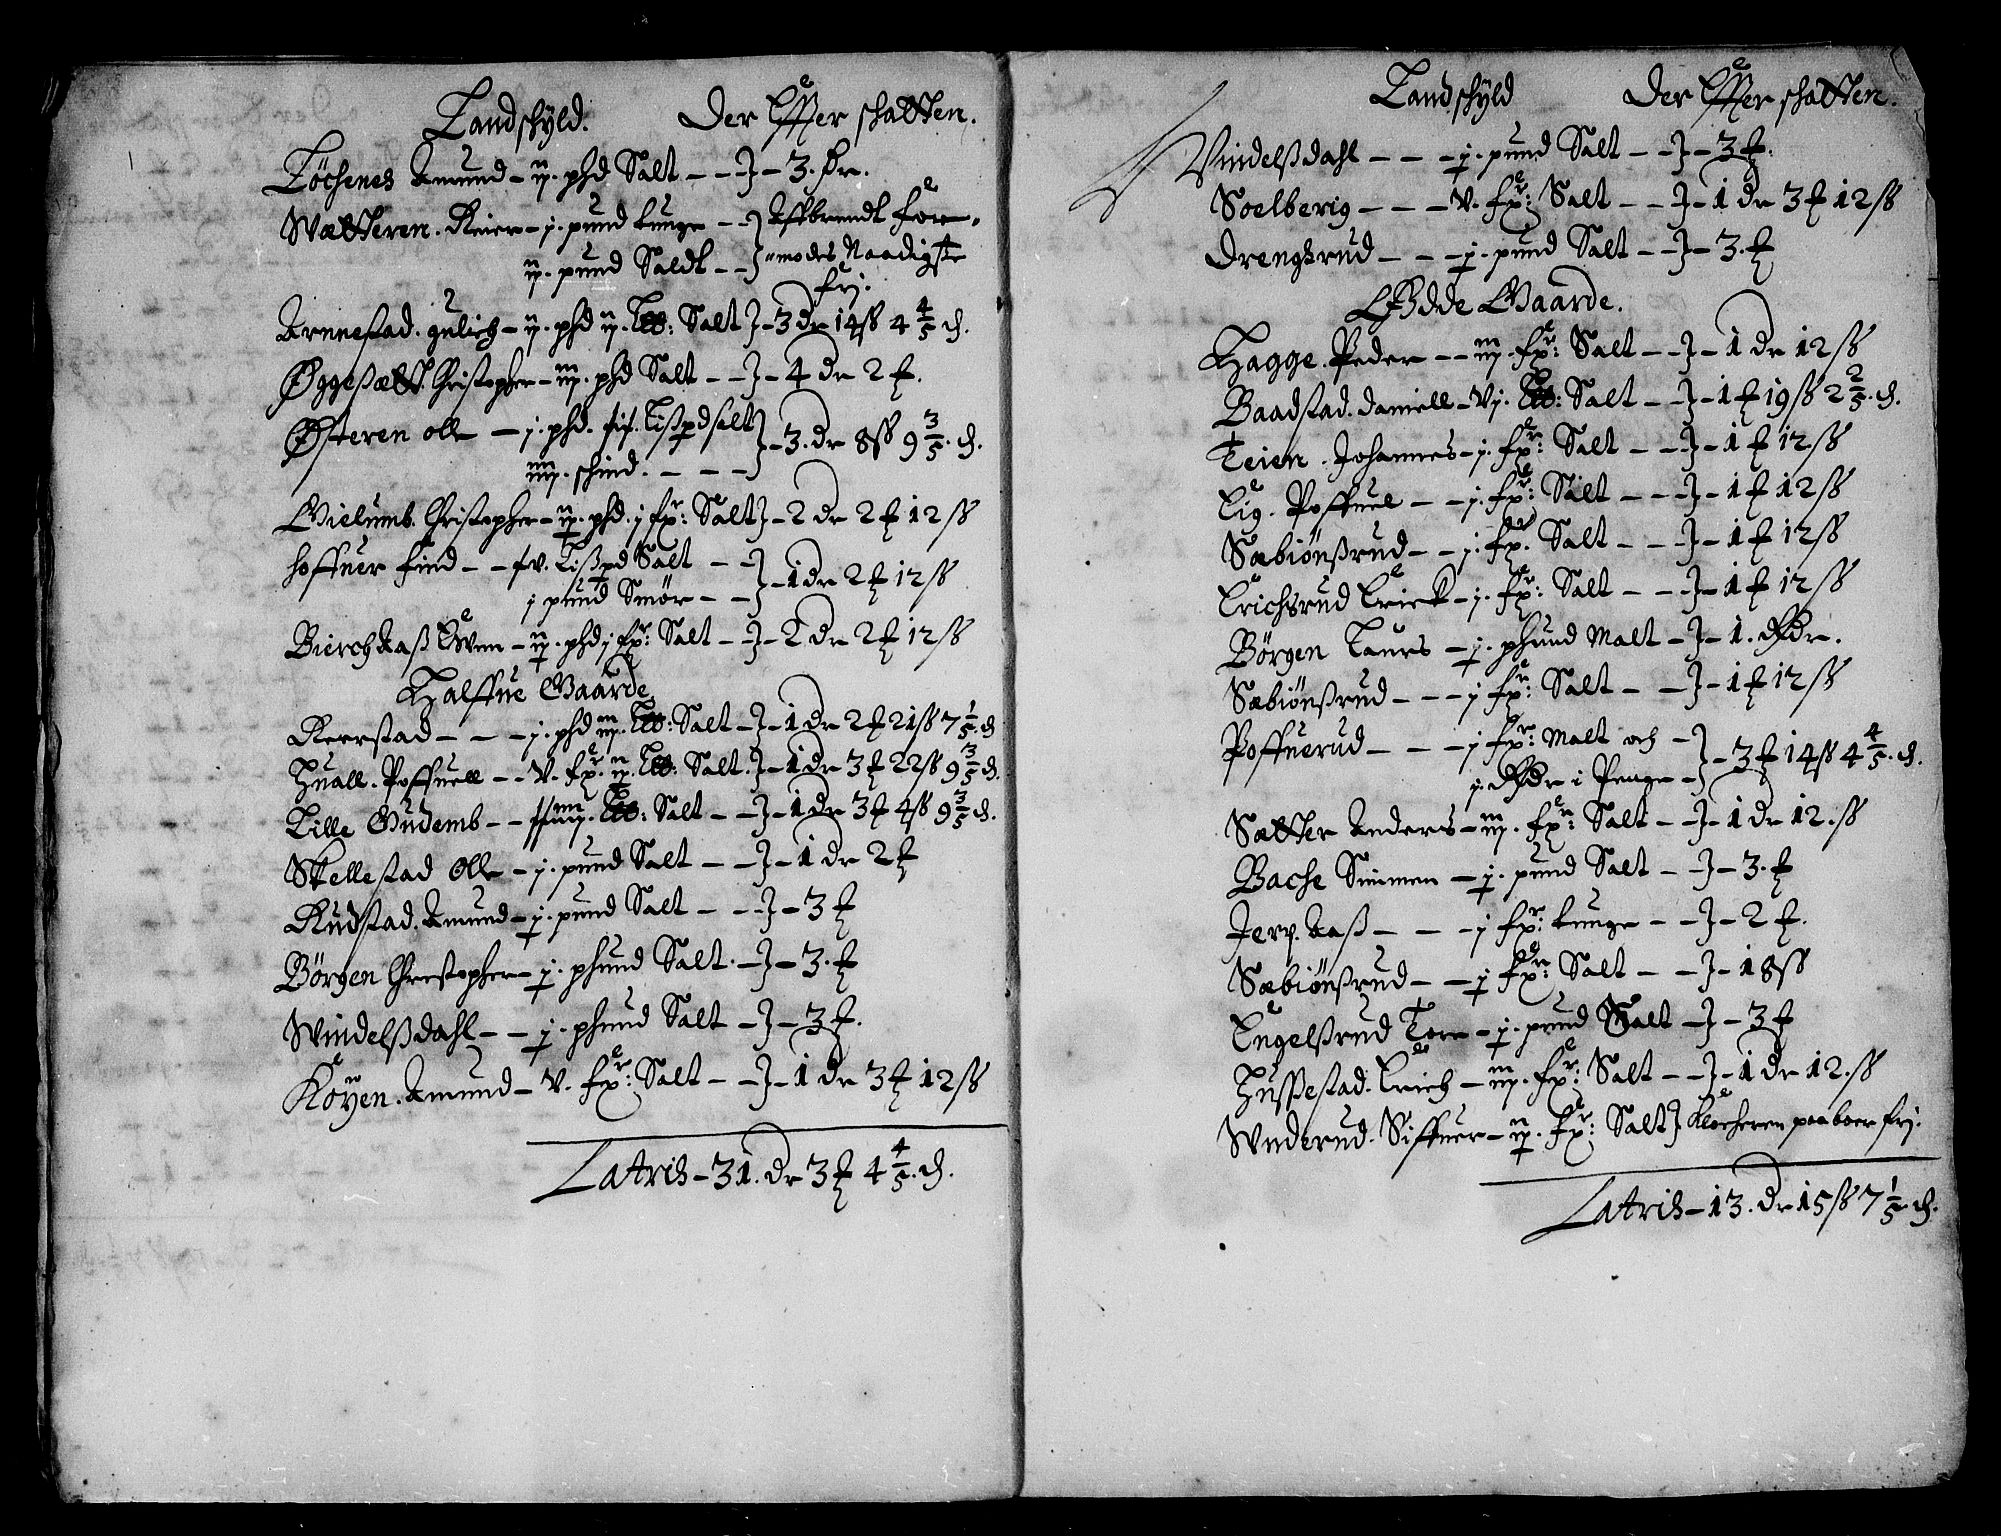 Landskyld. Der Effter skatten.
Löchenes Amund – ij. phd Salt – – } – 3. dr.
Wætteren. Reier – j. pund tunge – – } Affbrendt fore-
iij. pund Saldt – – } modes Naadigste
frj.
Arnnestad. gulich – ij. phd ij. Lb: Salt } – 3 dr 14 ß 4 4/5 d.
Øggesætt. Christopher – iij. phd Salt – – } – 4 dr 2 ℔.
Østeren olle – j. phd. Lißpd salt } – 3. dr 8 ß 9 3/5. d.
iiij. skind. – – –
Gielumb. Christopher – ij. phd. j fr: Salt } – 2 dr 2 ℔ 12 ß
hoffuer find – – Lißpd Salt – – } – 1 dr 2 ℔ 12 ß
j pund Smör – – }
Bierch Aaß Even – ij. phd j fr: Salt – } – 2 dr 2 ℔ 12 ß
Halffue Gaarde
Reerstad – – – j. phd iij. Lb: Salt – } – 1 dr 2 ℔ 21 ß 7 1/5. d
Huall. Poffuell – – v. fr. ij. Lb: Salt. } – 1 dr 3 ℔ 22 ß 9 3/5 d.
Lille Gudemb – – Lb: Salt – – } – 1 dr 3 ℔ 4 ß 9 3/5 d.
Skellestad Olle – j. pund Salt – – } – 1 dr 2 ℔
Rudstad. Amund – j. pund Salt – – } – 3 ℔
Börgen Christopher – j. phund Salt. – } – 3. ℔
Windelßdahl – – j. phund Salt – } – 3 ℔.
Köyen. Amund – v. fr: Salt – – } – 1 dr 3 ℔ 12 ß
Latris – 31. dr 3 ℔ 4 4/5. d.
Landskyld Der Effter skatten.
Vindelßdahl – – – j. pund Salt – – } – 3 ℔.
Soelberig – – – v. fr: Salt – – } – 1 dr 3 ℔ 12 ß
Drengsrud – – – j. pund Salt – – } – 3. ℔
Ødde Gaarde.
Hagge. Peder – – iij. fr: Salt – – } – 1 dr 12 ß
Baadstad. Daniell – vj. Lb: Salt – } – 1 ℔ 19 ß 2 2/5. d.
Teien. Johannes – j. fr: Salt – – } – 1 ℔ 12 ß
Lig. Poffuel – – j. fr: Salt – – } – 1 ℔ 12 ß
Sæbiönßrud – – j. fr. Salt – – } – 1 ℔ 12 ß
Erichsrud Erick – j. fr: Salt – – } – 1 ℔ 12 ß
Börgen Laurs – j. phund Malt – } – 1. Ordr.
Sæbiönßrud – – – j fr: Salt – – } – 1 ℔ 12 ß
Poffuerud – – – j fr: Malt och – } – 3 ℔ 14 ß 4 4/5. d.
j. Ordr i Penge – }
Sætter Anders – iij. fr: Salt – – } – 1 dr 12. ß
Bache Simmen – j. pund Salt – } – 3. ℔
Jerp. Aaß – – – j fr: tunge – – } – 2 ℔.
Sæbiönßrud – – j fr: Salt – – } – 18 ß
Engelßrud Tore – j. pund Salt – } – 3 ℔
Hußestad. Erich – iij. fr: Salt – – } – 1 dr 12. ß
Wnderud. Siffuer – ij. fr: Salt } Klocheren paaboer frj.
Latris – 13. dr 15 ß 7 1/5. d.